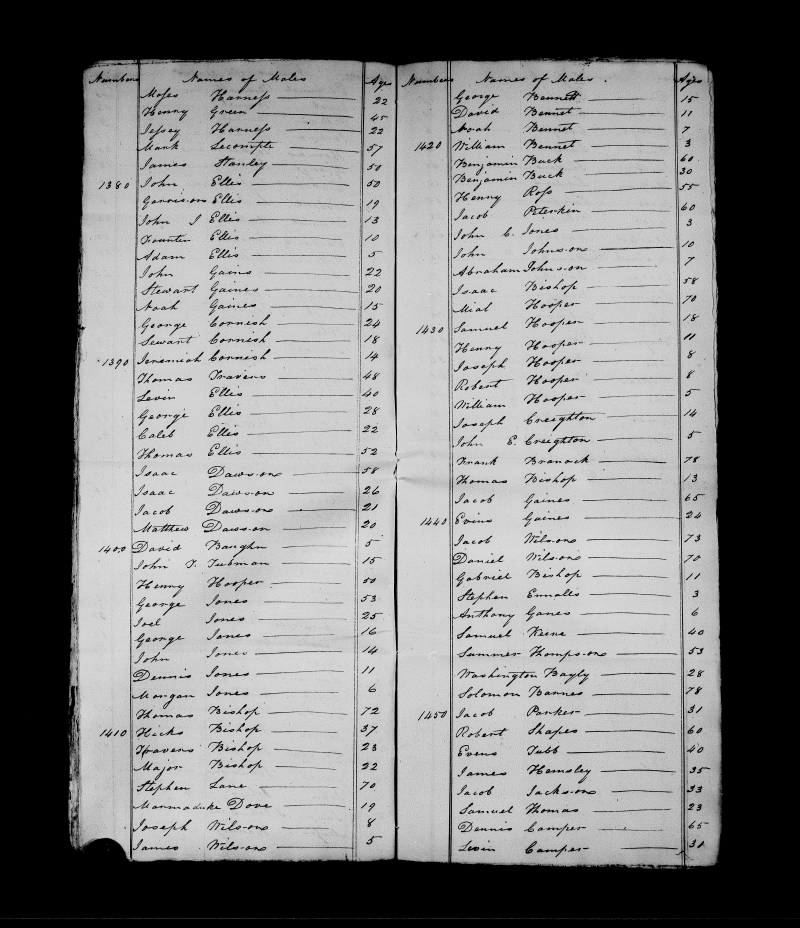 Numbers Names of Males Ages
Moses Harness 22
Henry Green 45
Jessey Harness 22
Mark Lecompte 57
James Stanley 50
1380 John Ellis 50
Garrison Ellis 19
John J Ellis 13
Fountin Ellis 10
Adam Ellis 5
John Gains 22
Stewart Gaines 20
Noah Gaines 15
George Cornish 24
Sewart Cornish 18
1390 Jeremiah Cornish 14
Thomas Travers 48
Levin Ellis 40
George Ellis 28
Caleb Ellis 22
Thomas Ellis 52
Isaac Dawson 58
Isaac Dawson 26
Jacob Dawson 21
Matthew Dawson 20
1400 David Baughn 5
John T. Tubman 15
Henry Hooper 50
George Jones 53
Joel Jones 25
George Jones 16
John Jones 14
Dennis Jones 11
Morgan Jones 6
Thomas Bishop 72
1410 Hicks Bishop 37
Travers Bishop 23
Major Bishop 22
Stephen Lane 70
Marmaduke Dove 19
Joseph Wilson 8
James Wilson 5
Numbers Names of Males. Ages
George Bennett 15
David Bennet 11
Noah Bennet 7
1420 William Bennet 3
Benjamin Buck 60
Benjamin Buck 30
Henry Ross 55
Jacob Peterkin 60
John C. Jones 3
John Johnson 10
Abraham Johnson 7
Isaac Bishop 58
Mial Hooper 70
1430 Samuel Hooper 18
Henry Hooper 11
Joseph Hooper 8
Robert Hooper 8
William Hooper 5
Joseph Creighton 14
John E. Creighton 5
Frank Branock 78
Thomas Bishop 13
Jacob Gaines 65
1440 Evins Gaines 24
Jacob Wilson 73
Daniel Wilson 70
Gabriel Bishop 11
Stephen Ennalls 3
Anthony Ganes 6
Samuel Keene 40
Summer Thompson 53
Washington Bayly 28
Solomon Barnes 78
1450 Jacob Parker 31
Robert Shapes 60
Evens Tubb 40
James Hemsley 35
Jacob Jackson 33
Samuel Thomas 23
Dennis Camper 65
Levin Camper 31